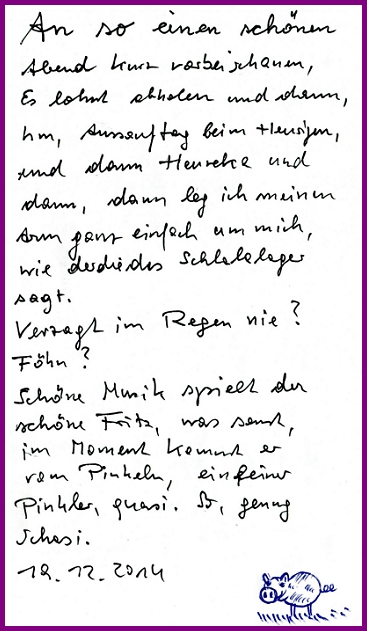 An so einen schönen
Abend kurz vorbeischauen,
Es lohnt abholen und dann,
hm, Aussauftag beim Heurigen,
und dann Heureka und
dann, dann leg ich meinen
Arm ganz einfach um mich,
wie derdiedas Schlakalager
sagt.
Verzagt im Regen nie?
Föhn?
Schöne Musik spielt der
schöne Fritz, was sonst,
im Moment kommt er
vom Pinkeln, ein feiner
Pinkler, quasi. So, genug
Schasi.
19.12.2014